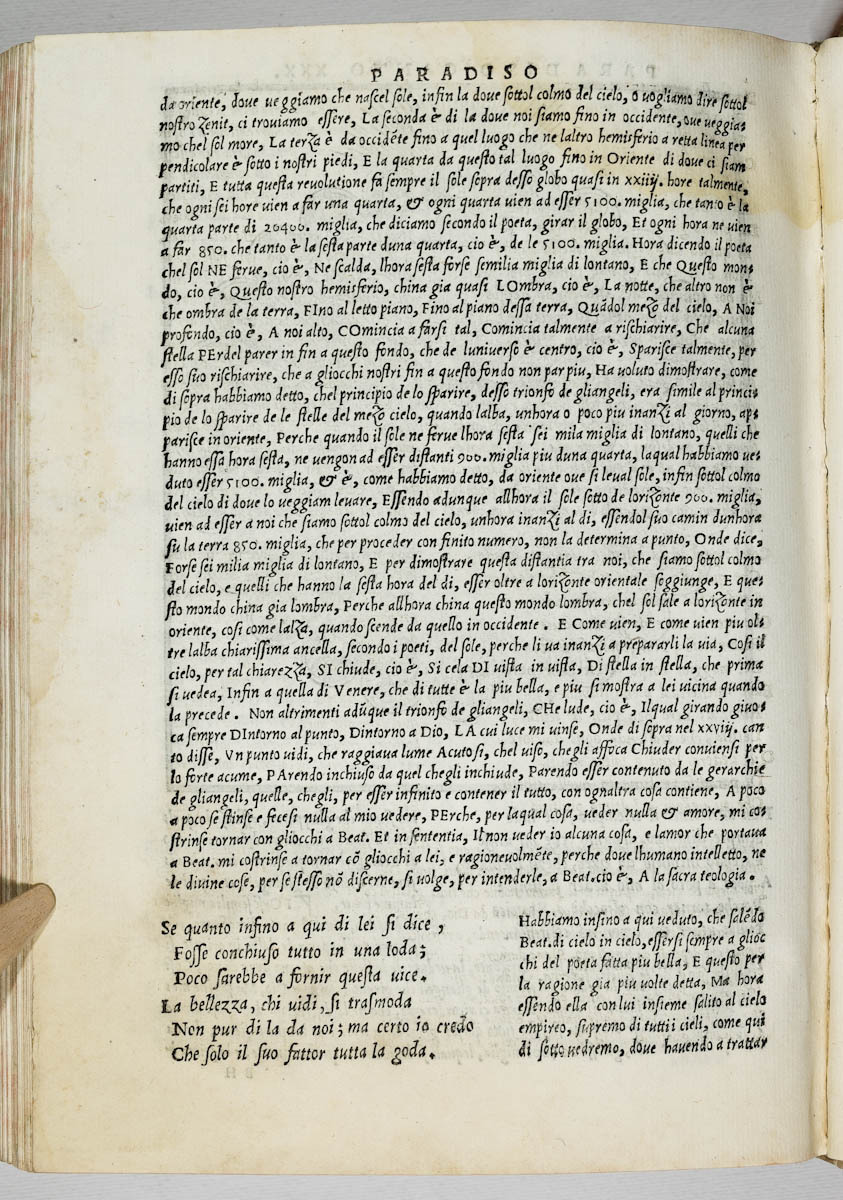 PARADISO
da oriente, dove ueggiamo che nascel sole, infin la dove sottol colmo del cielo, o vogliamo dire sottol
nostro Zenit, ci troviamo essere, La seconda è di la dove noi siamo fino in occidente, oue ueggia-
mo chel sol more, La terza è da occidẽte fino a quel luogo che ne laltro hemisferio a retta linea per
pendicolare è sotto i nostri piedi, E la quarta da questo tal luogo fino in Oriente di dove ci siam
partiti, E tutta questa revolutione fa sempre il sole sopra desso globo quasi in xxiiij. hore talmente,
che ogni sei hore vien a far una quarta, & ogni quarta vien ad esser 5100. miglia, che tanto è la
quarta parte di 20400. miglia, che diciamo secondo il poeta, girar il globo, Et ogni hora ne vien
a far 850. che tanto è la sesta parte duna quarta, cio è, de le 5100. miglia. Hora dicendo il poeta
chel sol NE ferue, cio è, Ne scalda, lhora sesta forse semilia miglia di lontano, E che Questo mon-
do, cio è, Questo nostro hemisferio, china gia quasi LOmbra, cio è, La notte, che altro non è
che ombra de la terra, FIno al letto piano, Fino al piano dessa terra, Quãdol mezo del cielo, A Noi
profondo, cio è, A noi alto, COmincia a farsi tal, Comincia talmente a rischiarire, Che alcuna
stella PErdel parer in fin a questo fondo, che de luniverso è centro, cio è, Sparisce talmente, per
esso suo rischiarire, che a gliocchi nostri fin a questo fondo non par piu, Ha voluto dimostrare, come
di sopra habbiamo detto, chel principio de lo sparire, desso trionfo de gliangeli, era simile al princi-
pio de lo sparire de le stelle del mezo cielo, quando lalba, unhora o poco piu inanzi al giorno, ap-
parisce in oriente, Perche quando il sole ne ferue lhora sesta sei mila miglia di lontano, quelli che
hanno essa hora sesta, ne uengon ad esser distanti 900. miglia piu duna quarta, laqual habbiamo ue-
duto esser 5100. miglia, & è, come habbiamo detto, da oriente oue si leual sole, infin sottol colmo
del cielo di dove lo veggiam levare, Essendo adunque allhora il sole sotto de lorizonte 900. miglia,
uien ad esser a noi che siamo sottol colmo del cielo, unhora inanzi al di, essendol suo camin dunhora
su la terra 850. miglia, che per proceder con finito numero, non la determina a punto, Onde dice,
Forse sei milia miglia di lontano, E per dimostrare questa distantia tra noi, che siamo sottol colmo
del cielo, e quelli che hanno la sesta hora del di, esser oltre a lorizonte orientale soggiunge, E que-
sto mondo china gia lombra, Perche allhora china questo mondo lombra, chel sol sale a lorizonte in
oriente, cosi come lalza, quando scende da quello in occidente. E Come uien, E come uien piu ol-
tre lalba chiarissima ancella, secondo i poeti, del sole, perche li ua inanzi a prepararli la uia, Cosi il
cielo, per tal chiarezza, SI chiude, cio è, Si cela DI uista in uista, Di stella in stella, che prima
si uedea, Infin a quella di Venere, che di tutte è la piu bella, e piu si mostra a lei uicina quando
la precede. Non altrimenti adũque il trionfo de gliangeli, CHe lude, cio è, Ilqual girando giuo-
ca sempre DIntorno al punto, Dintorno a Dio, LA cui luce mi uinse, Onde di sopra nel xxviij. can
to disse, Vn punto uidi, che raggiaua lume Acuto si, chel uiso, chegli affoca Chiuder conuiensi per
lo forte acume, PArendo inchiuso da quel chegli inchiude, Parendo esser contenuto da le gerarchie
de gliangeli, quelle, chegli, per esser infinito e contener il tutto, con ognaltra cosa contiene, A poco
a poco se stinse e fecesi nulla al mio vedere, PErche, per laqual cosa, ueder nulla & amore, mi co-
strinse tornar con gliocchi a Beat. Et in sententia, Il non veder io alcuna cosa, e lamor che portaua
a Beat. mi costrinse a tornar cõ gliocchi a lei, e ragioneuolmẽte, perche dove lhumano intelletto, ne
le divine cose, per se stesso nõ discerne, si volge, per intenderle, a Beat. cio è, A la sacra teologia.
Se quanto infino a qui di lei si dice,
Fosse conchiuso tutto in una loda;
Poco sarebbe a fornir questa uice.
La bellezza, chi vidi, si trasmoda
Non pur di la da noi; ma certo io credo
Che solo il suo fattor tutta la goda.
Habbiamo insino a qui veduto, che salẽdo
Beat. di cielo in cielo, essersi sempre a glioc
chi del poeta fatta piu bella, E questo per
la ragione gia piu uolte detta, Ma hora
essendo ella con lui insieme salito al cielo
empireo, supremo di tutti i cieli, come qui
di sotto uedremo, dove hauendo a trattar